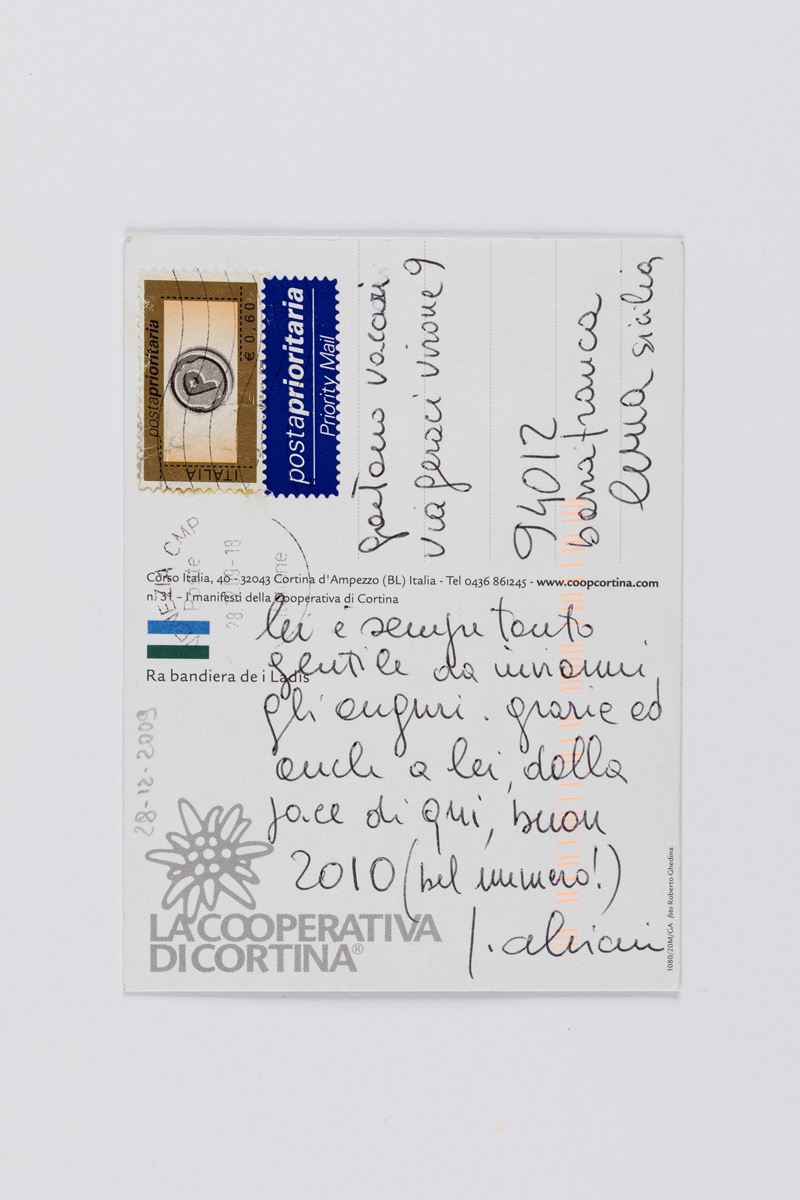 postaprioritaria
€ 0,60
P
ITALIA
postaprioritaria
Priority Mail
gaetano vacari
via geraci virone 9
94012
barrafranca
enna sicilia
VENEZIA CMP
Corso Italia, 40 - 32043 Cortina d'Ampezzo (BL) Italia - Tel 0436 861245 - www.coopcortina.com
n. 31 – I manifesti della Cooperativa di Cortina
Ra bandiera de i Ladis
lei è sempre tanto
gentile da inviarmi
gli auguri. grazie ed
anche a lei, dalla
pace di qui, buon
2010 (bel numero!)
28-12-2009
LA COOPERATIVA
DI CORTINA®
1080/20M/GA foto Roberto Ghedina